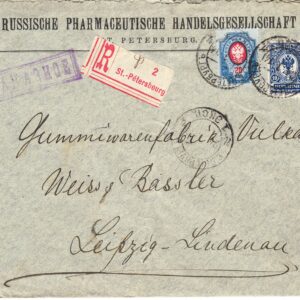 RUSSISCHE PHARMACEUTISCHE HANDELSGESELLSCHAFT
ST. PETERSBURG.
R
2
St.-Pétersbourg
20
Gummiwarenfabrik Vulkan
Weiss & Bassler
Leipzig-Lindenau